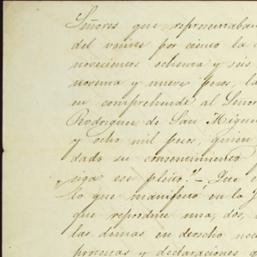 Señores que representaban
del veinte por ciento la
novecientos ochenta y seis
noventa y nueve pesos, la
en comprehende al Señor
Rodriguez de San Migue
y ocho mil pesos, quien
dado su consentimiento
siga su pleito? Que
lo que manifestó en la J
que reproduce una, dos,
las demas en derecho nec
protestas y declaraciones q